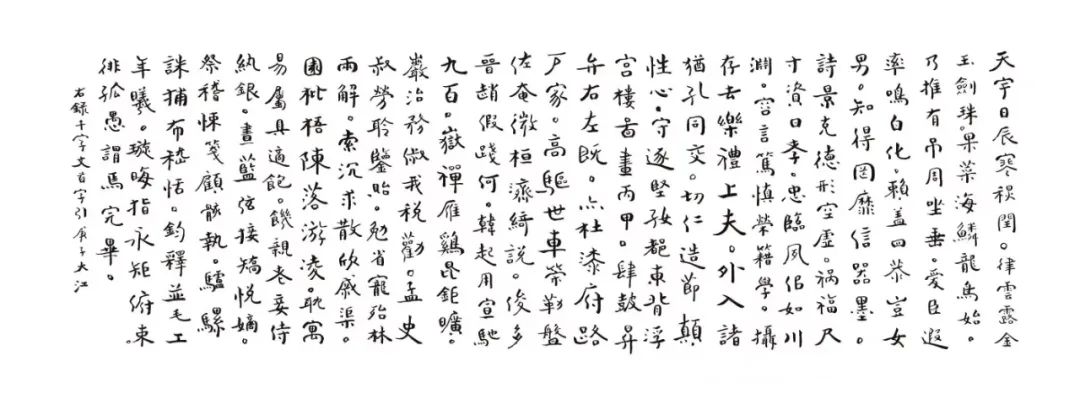 天宇日辰寒秋閏。律雲露金
玉劍珠果菜海鱗龍鳥始。
乃推有吊周坐垂。愛臣遐
率鳴白化。賴蓋四恭豈女
男。知得罔靡信器墨。
詩景克德形空虛。禍福尺
寸資日孝。忠臨夙似如川
淵。容言篤慎榮籍學。攝
存去樂禮上夫。外入諸
猶孔同交。切仁造節顛
性心。守逐堅好都東背浮
宮樓圖畫丙甲。肆鼓昇
弁右左既。亦杜漆府路
戶家。高驅世車策勒盤
佐奄微桓濟綺說。俊多
晉趙假踐何。韓起用宣馳
九百。嶽禪雁雞昆鉅曠。
巖治務俶我稅勸。孟史
叔勞聆鑒貽。勉省寵殆林
兩解。索沉求散欣慼渠。
園枇梧陳落游凌。耽寓
易屬具適飽。饑親老妾侍
紈銀。晝藍弦接矯悅嫡。
祭稽悚箋顧骸執。驢騾
誅捕布嵇恬。鈞釋並毛工
年曦。璇晦指永矩俯束。
徘孤愚謂焉完畢。
右錄千字文首字引庚子大江